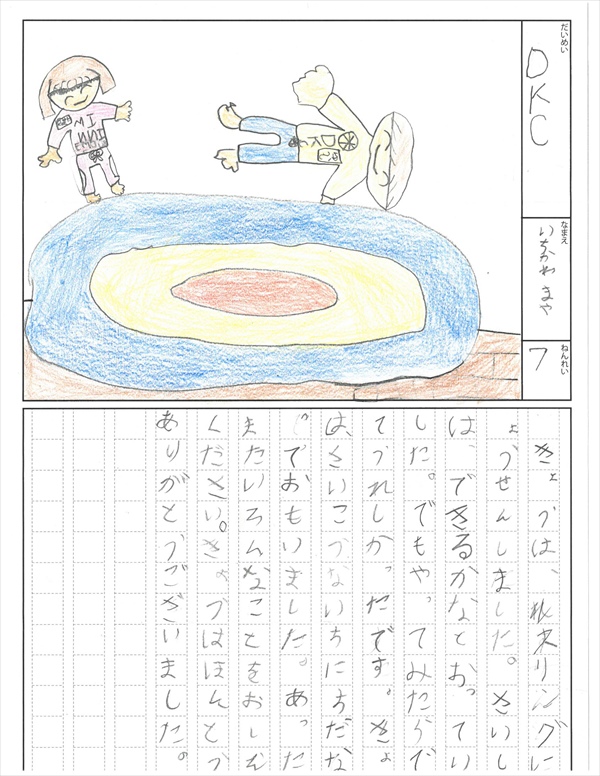 だいめい
DKC
なまえ
いちかわ まや
ねんれい
7
DKC
きょうは、リングに
ょうせんしました。さいし
は、できるかなとおってい
した。でもやってみたらで
てうれしかったです。きょ
は、さいこうないちにちだな
でおもいました。あった
またいろんなことをおしえ
ください。きょうはほんとう
ありがとうございました。